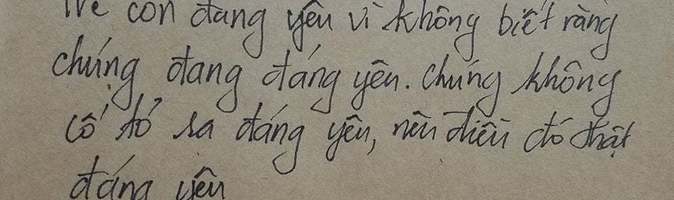 Trẻ con đáng yêu vì không biết rằng
chúng đang đáng yêu. Chúng không
cố tỏ ra đáng yêu, nên điều đó thật
đáng yêu